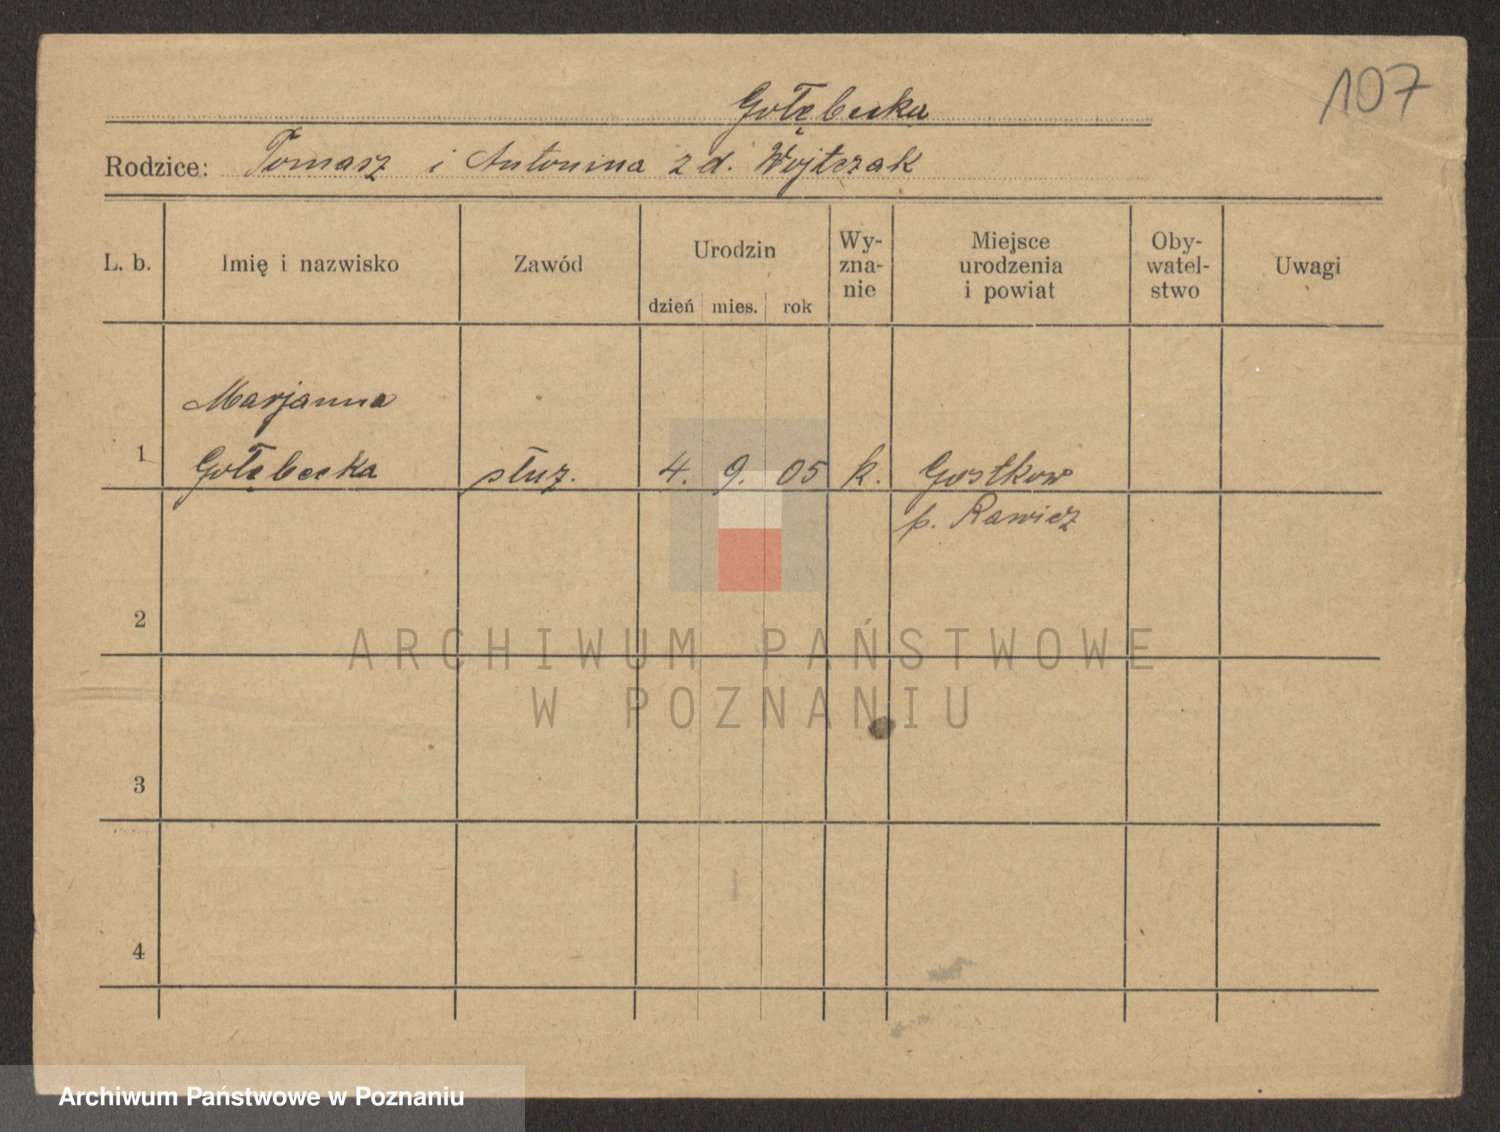 107
Gołębecka
Rodzice: Tomasz i Antonina z d. Wojtczak
L. b. Imię i nazwisko Zawód Urodzin dzień mies. rok Wy-zna-nie Miejsce urodzenia i powiat Oby-watel-stwo Uwagi
Marjanna
1 Gołębecka służ. 4. 9. 05 k. Gostkow
p. Rawicz
2
ARCHIWUM PAŃSTWOWE
W POZNANIU
3
4
Archiwum Państwowe w Poznaniu